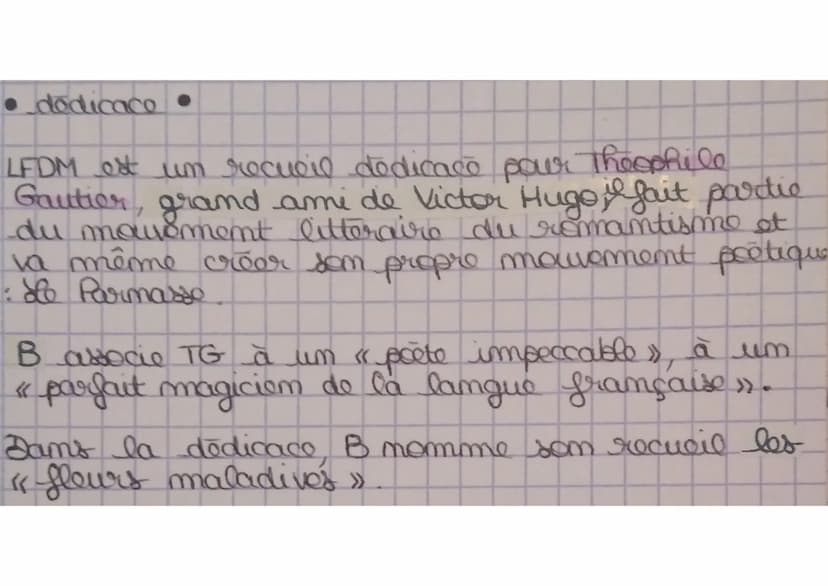 • dédicace •
LFDM est un recueil dédicacé pour Théophile
Gautier, grand ami de Victor Hugo, il fait partie
du mouvement littéraire du romantisme et
va même créer son propre mouvement poétique
: le Parnasse.
B associe TG à un « poète impeccable », à un
« parfait magicien de la langue française ».
Dans la dédicace, B nomme son recueil les
« fleurs maladives ».